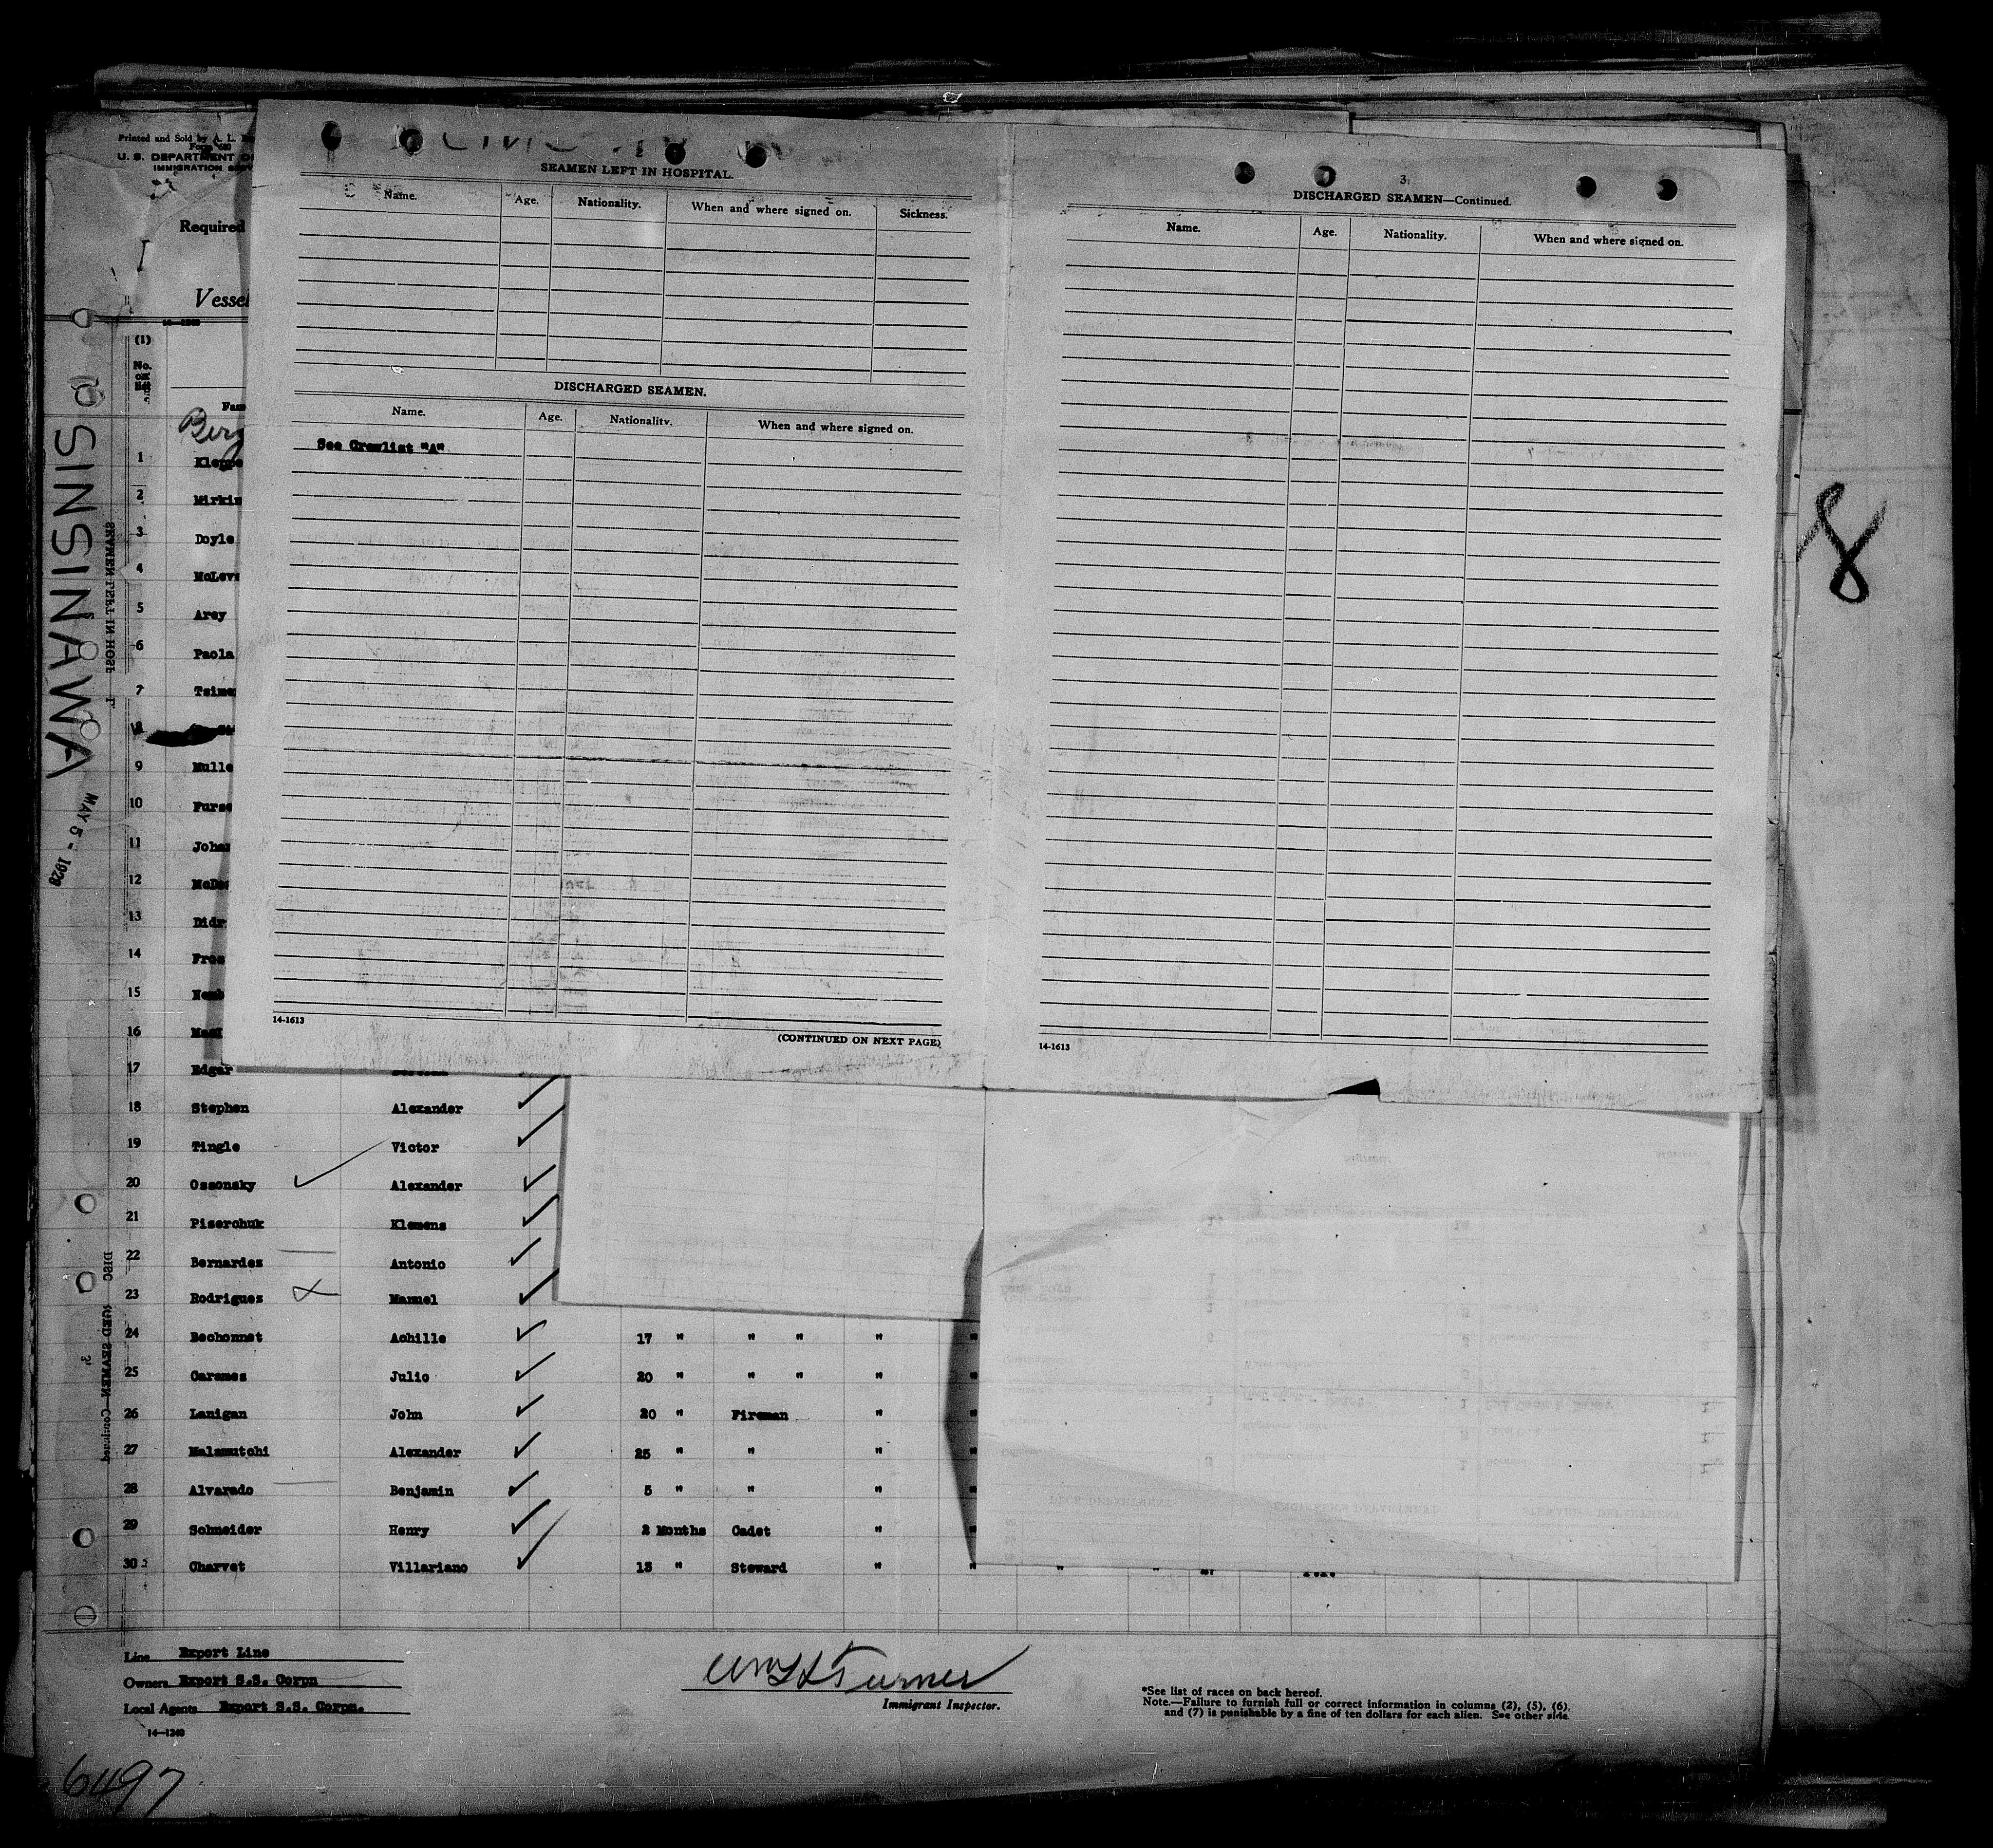 Printed and Sold by A. L.
Form 680
U. S. DEPARTMENT
IMMIGRATION
Required
Vessel
14—1240
(1)
No.
on
list
Berg
1 Kleppe
2 Mirkin
3 Doyle
4 McLeve
5 Arey
6 Paola
7
9 Mulle
10 Furse
11 Johan
12
13 Didr
14 Fros
15
16
17 Edgar
18 Stephen Alexander
19 Tingle Victor
20 Ossonsky Alexander
21 Piserchuk Klemens
22 Bernardez Antonio
23 Rodriguez Manuel
24 Bechonnet Achille 17 " " " "
25 Carames Julio 20 " " " "
26 Lanigan John 20 " Fireman "
27 Malamutchi Alexander 25 " " "
28 Alvarado Benjamin 5 " " "
29 Schneider Henry 2 Months Cadet "
30 Charvet Villariano 13 " Steward " " " "
Line Export Line
Owners Export S.S. Corpn
Local Agents Export S.S. Corpn.
14—1240
6497
Wm H Turner
Immigrant Inspector.
*See list of races on back hereof.
Note.—Failure to furnish full or correct information in columns (2), (5), (6),
and (7) is punishable by a fine of ten dollars for each alien. See other side.
SINSINAWA
MAY 5 - 1928
SEAMEN LEFT IN HOSPITAL.
Name. Age. Nationality. When and where signed on. Sickness.
DISCHARGED SEAMEN.
Name. Age. Nationality. When and where signed on.
See Crewlist "A"
14-1613
(CONTINUED ON NEXT PAGE)
3
DISCHARGED SEAMEN—Continued.
Name. Age. Nationality. When and where signed on.
14-1613
8